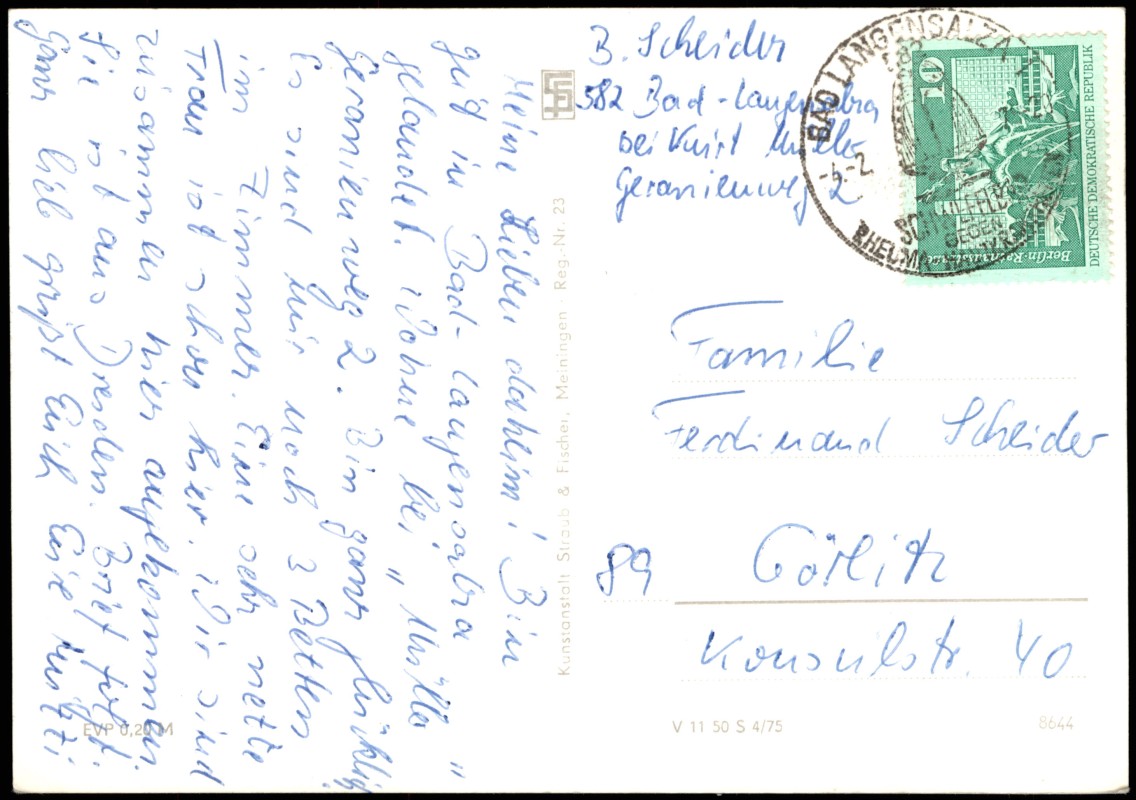 B. Scheider
582 Bad-Langensalza
bei Kurt Müller
Geranienweg 2
BAD LANGENSALZA
582
-4.-2.
SCHWEFELBAD
GEGEN
RHEUMA
10
DEUTSCHE DEMOKRATISCHE REPUBLIK
Berlin·
Meine Lieben dahlim! Bin
gut in Bad-Langensalza
gelandet. Wohne bei „Müller"
Geranienweg 2. Bin ganz glücklich
Es sind nur noch 3 Betten
im Zimmer. Eine sehr nette
Frau ist schon hier. Wir sind
zusammen hier angekommen.
Sie ist aus Dresden. Brief folgt.
Ganz lieb grüßt Euch Eure Mutti
Kunstanstalt Straub & Fischer, Meiningen · Reg.-Nr. 23
Familie
Ferdinand Scheider
89 Görlitz
Konsulstr. 40
EVP 0,20 M
V 11 50 S 4/75
8644